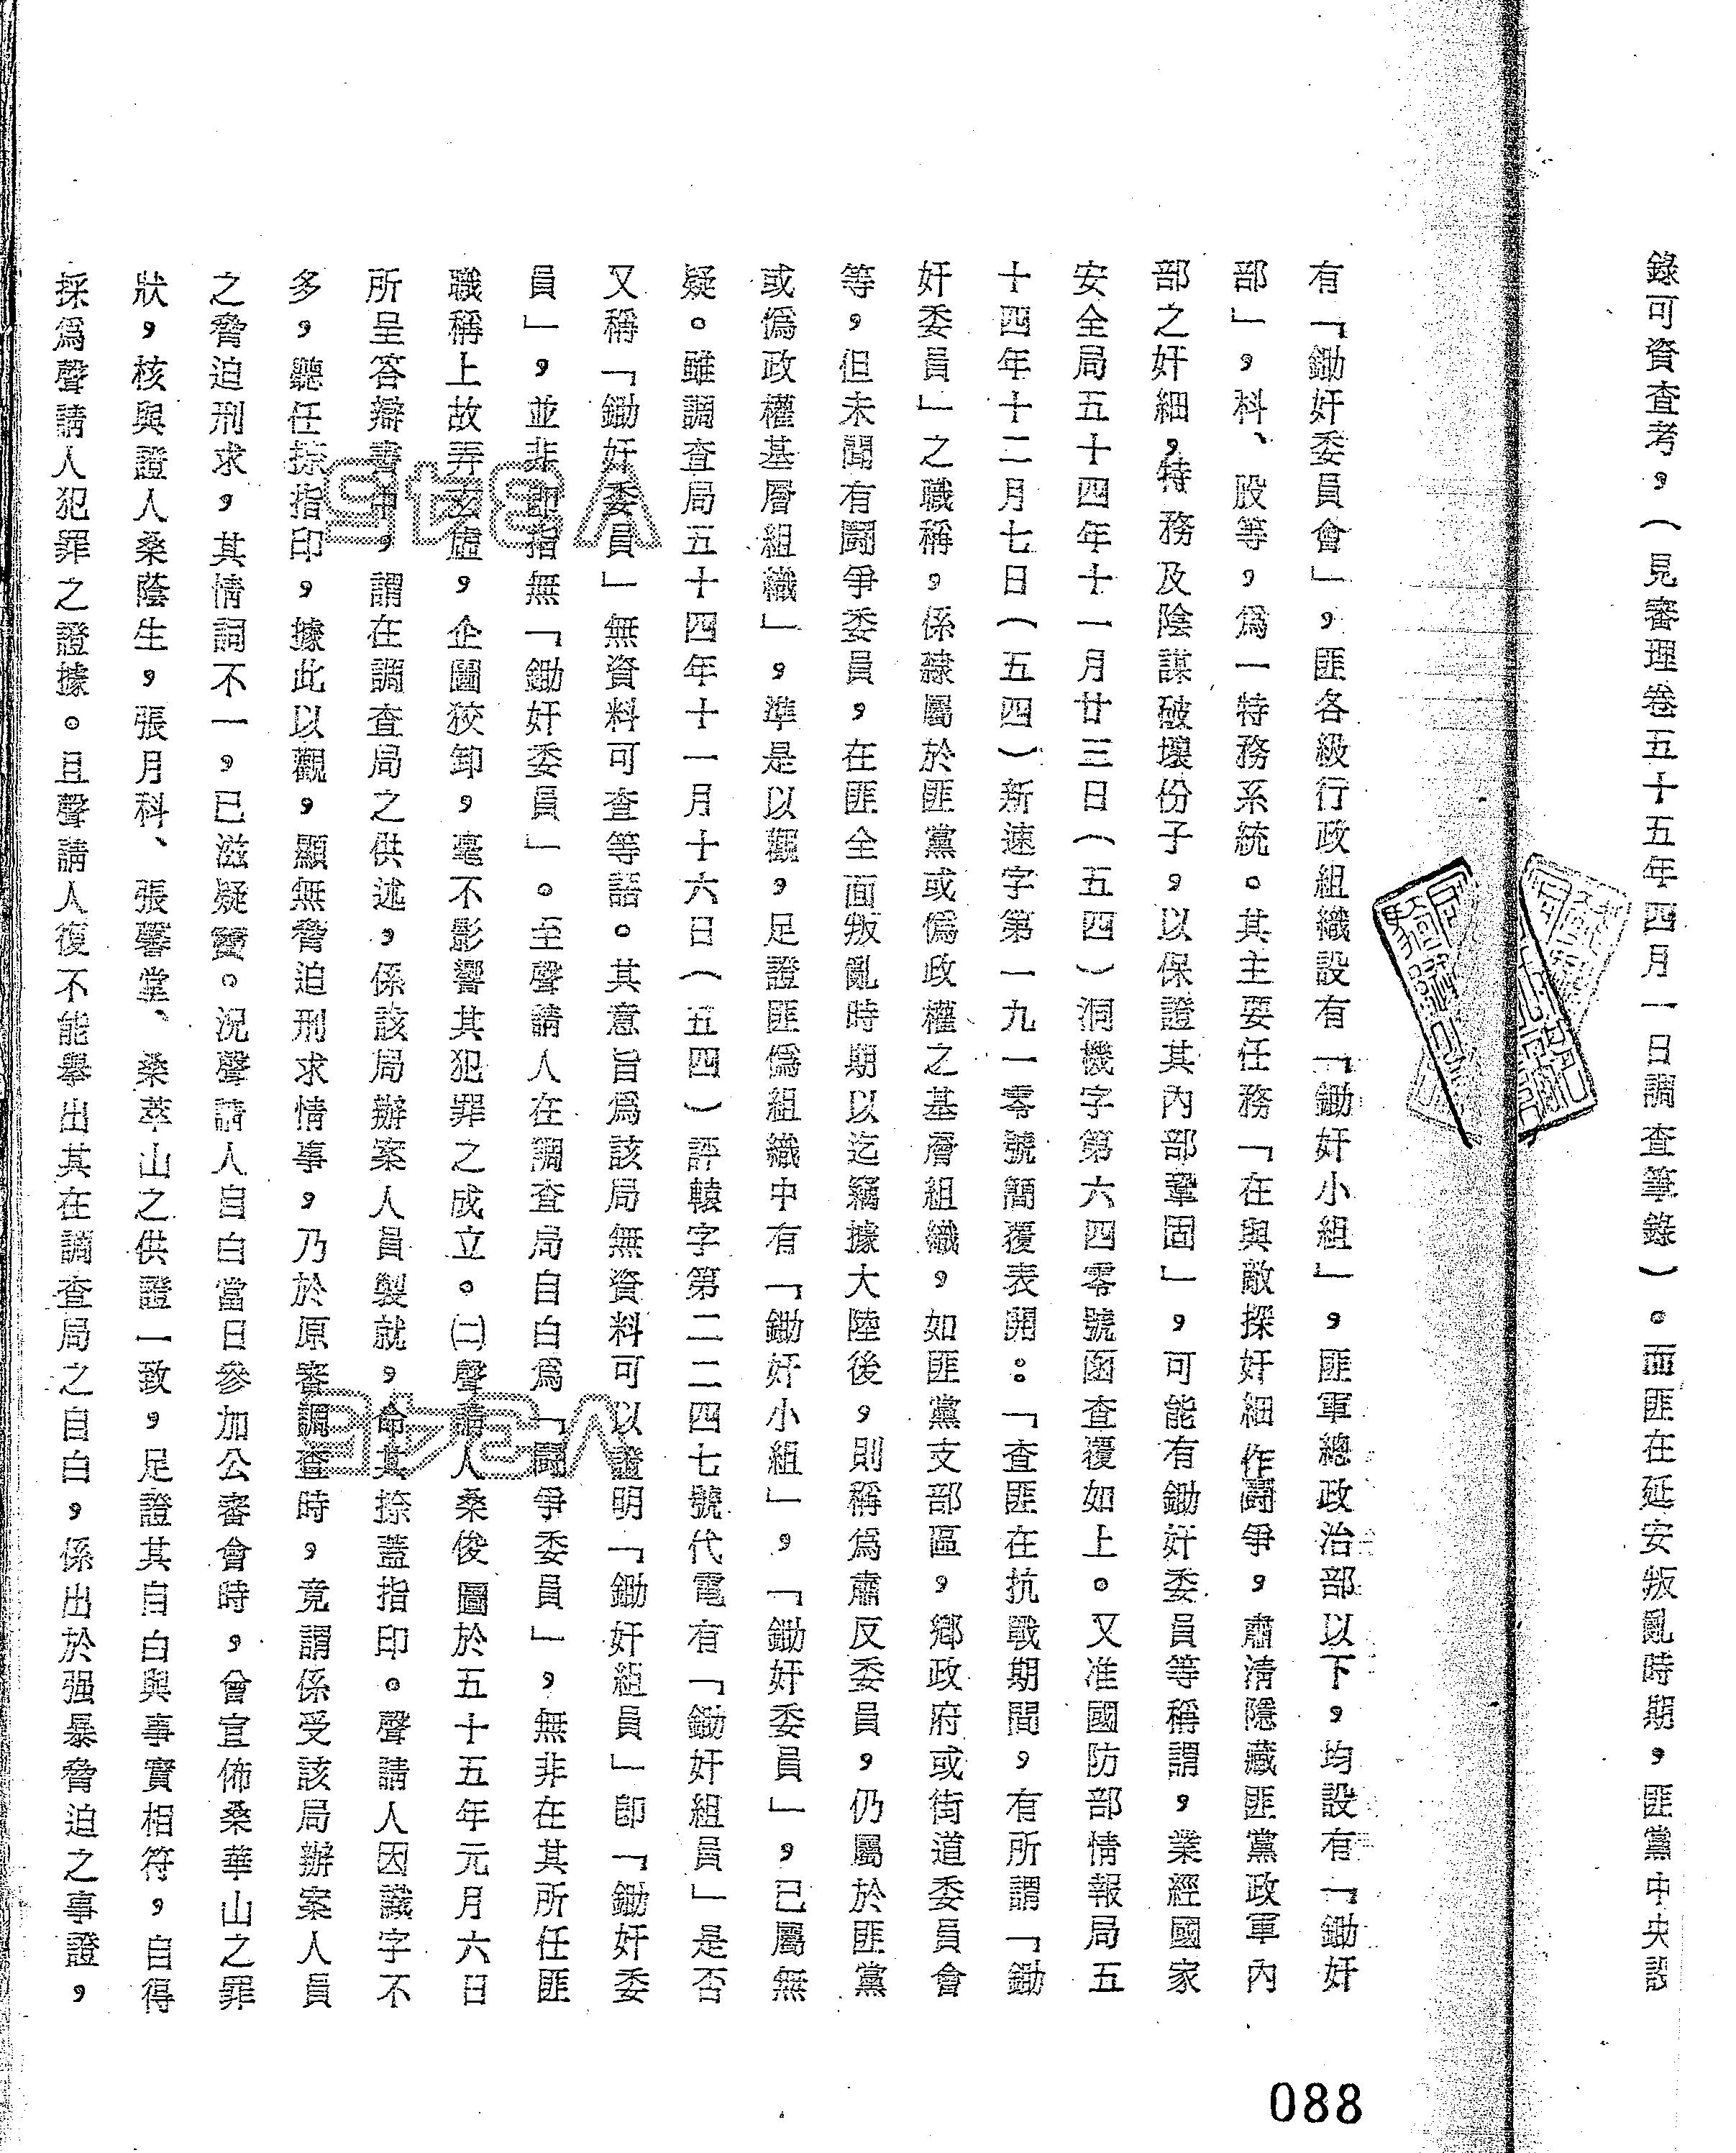 錄可資查考，（見審理卷五十五年四月一日調查筆錄）。而匪在延安叛亂時期，匪黨中央設
有「鋤奸委員會」，匪各級行政組織設有「鋤奸小組」，匪軍總政治部以下，均設有「鋤奸
部」，科、股等，為一特務系統。其主要任務「在與敵探奸細作鬪爭，肅清隱藏匪黨政軍內
部之奸細，特務及陰謀破壞份子，以保證其內部鞏固」，可能有鋤奸委員等稱謂，業經國家
安全局五十四年十一月廿三日（五四）洞機字第六四零號函查覆如上。又准國防部情報局五
十四年十二月七日（五四）新速字第一九一零號簡覆表開：「查匪在抗戰期間，有所謂「鋤
奸委員」之職稱，係隸屬於匪黨或偽政權之基層組織，如匪黨支部區，鄉政府或街道委員會
等，但未聞有鬪爭委員，在匪全面叛亂時期以迄竊據大陸後，則稱為肅反委員，仍屬於匪黨
或偽政權基層組織」，準是以觀，足證匪偽組織中有「鋤奸小組」，「鋤奸委員」，已屬無
疑。雖調查局五十四年十一月十六日（五四）評轅字第二二四七號代電有「鋤奸組員」是否
又稱「鋤奸委員」無資料可查等語。其意旨為該局無資料可以證明「鋤奸組員」即「鋤奸委
員」，並非即指無「鋤奸委員」。至聲請人在調查局自白為「鬪爭委員」，無非在其所任匪
職稱上故弄玄虛，企圖狡卸，毫不影響其犯罪之成立。㈡聲請人桑俊圖於五十五年元月六日
所呈答辯書中，謂在調查局之供述，係該局辦案人員製就，命其捺蓋指印。聲請人因識字不
多，聽任捺指印，據此以觀，顯無脅迫刑求情事，乃於原審調查時，竟謂係受該局辦案人員
之脅迫刑求，其情詞不一，已滋疑竇。況聲請人自白當日參加公審會時，曾宣佈桑華山之罪
狀，核與證人桑蔭生，張月科、張馨堂、桑萃山之供證一致，足證其自白與事實相符，自得
採為聲請人犯罪之證據。且聲請人復不能舉出其在調查局之自白，係出於强暴脅迫之事證，
A345
A345
088